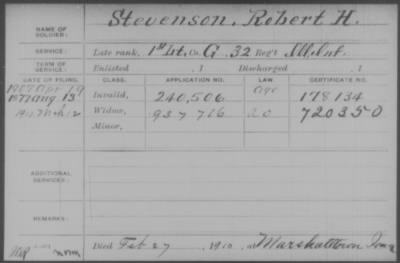 NAME OF SOLDIER: Stevenson, Robert H.
SERVICE: Late rank, 1st Lt, Co. G, 32 Reg't Ill. Inf.
TERM OF SERVICE: Enlisted , 1 Discharged , 1
DATE OF FILING. CLASS. APPLICATION NO. LAW CERTIFICATE NO.
1907 Apr 19 Age
1877 Aug 13 Invalid, 240,506 178134
1911 Mch 2 Widow, 957 716 720350
Minor,
ADDITIONAL SERVICES:
REMARKS:
Died Feb 27, 1910, at Marshalltown Iowa